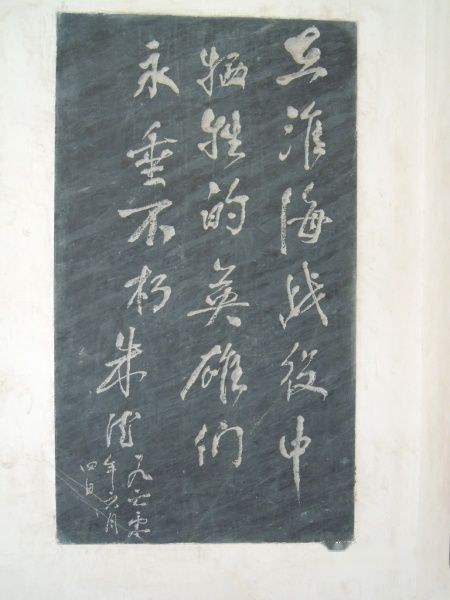 在淮海战役中
牺牲的英雄们
永垂不朽 朱德
一九六零
年六月
四日